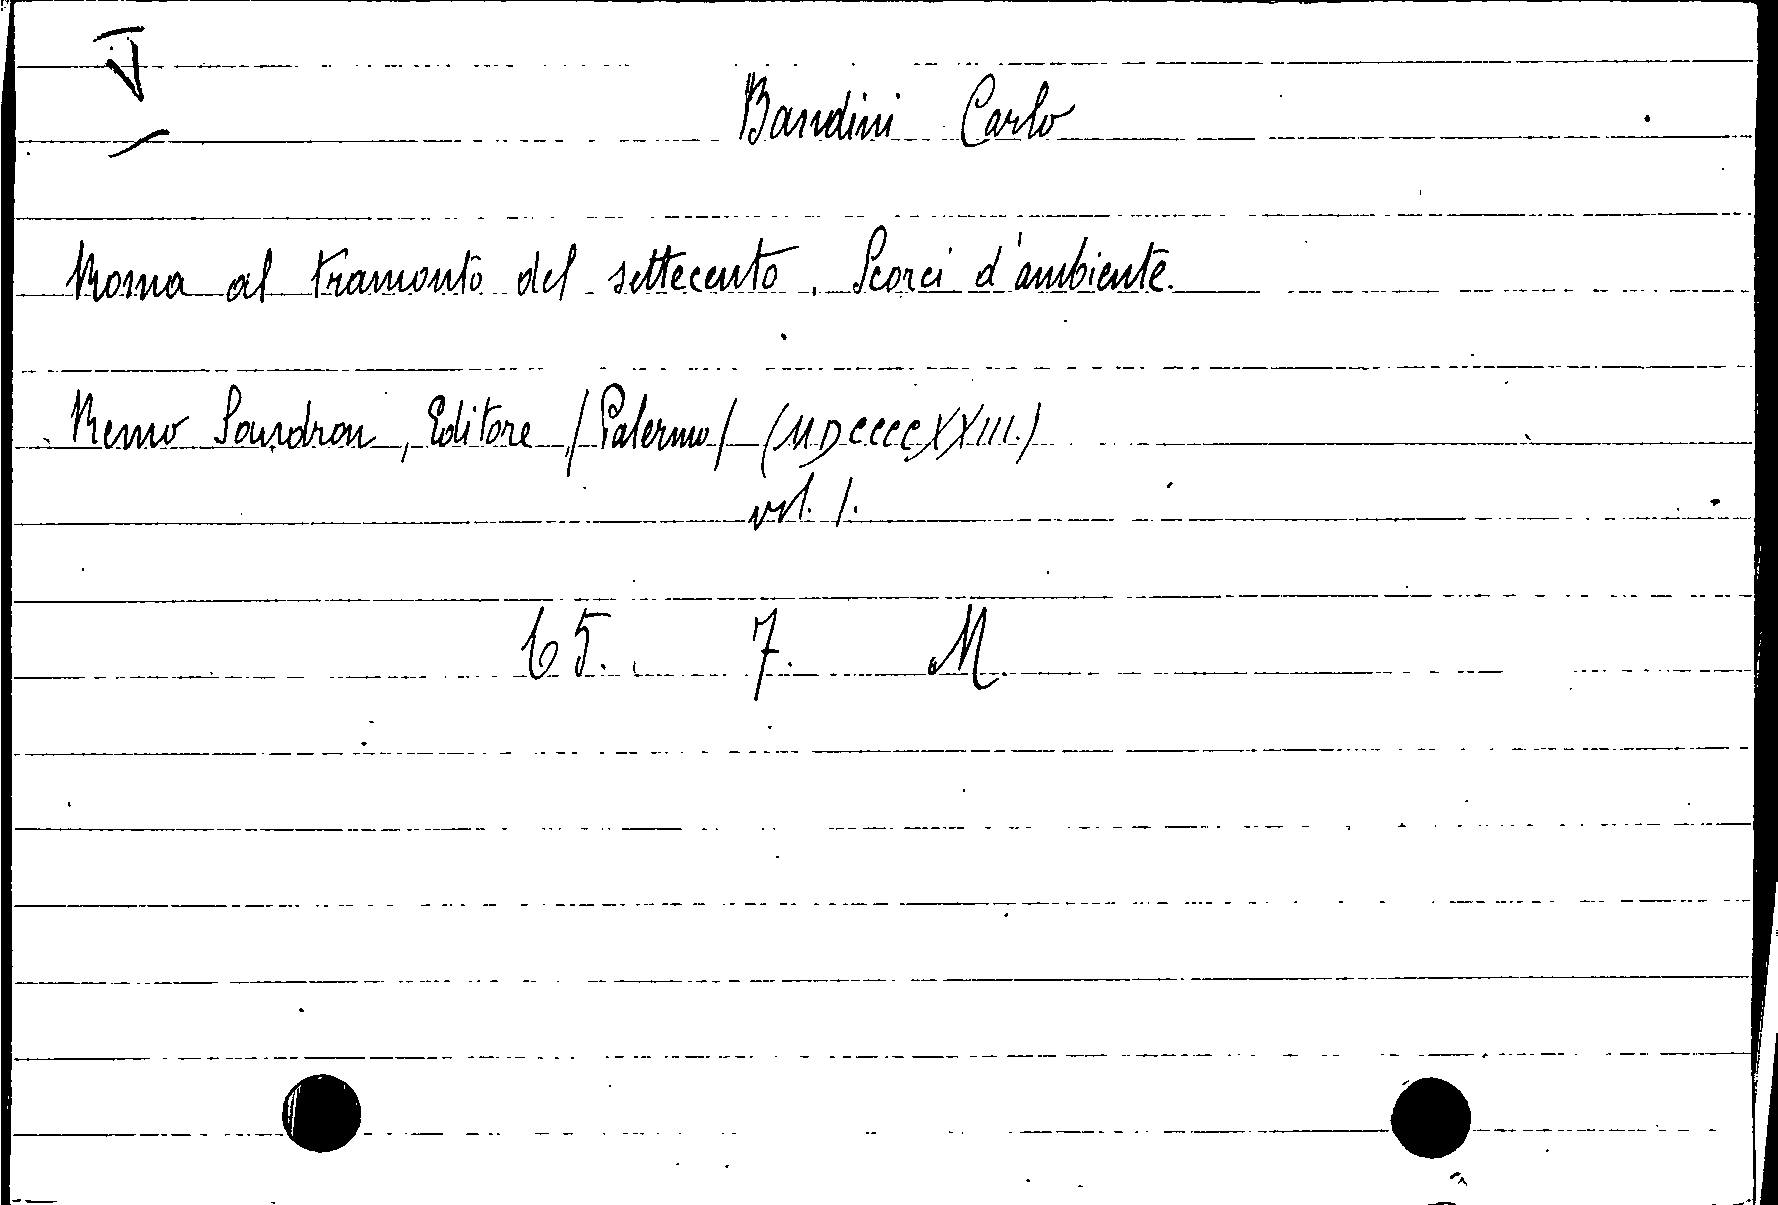 Bandini Carlo
Roma al tramonto del settecento. Scorci d'ambiente.
Remo Sandron, Editore /Palermo/ (MDCCCCXXIII.)
vol. 1.
65. 7. M.